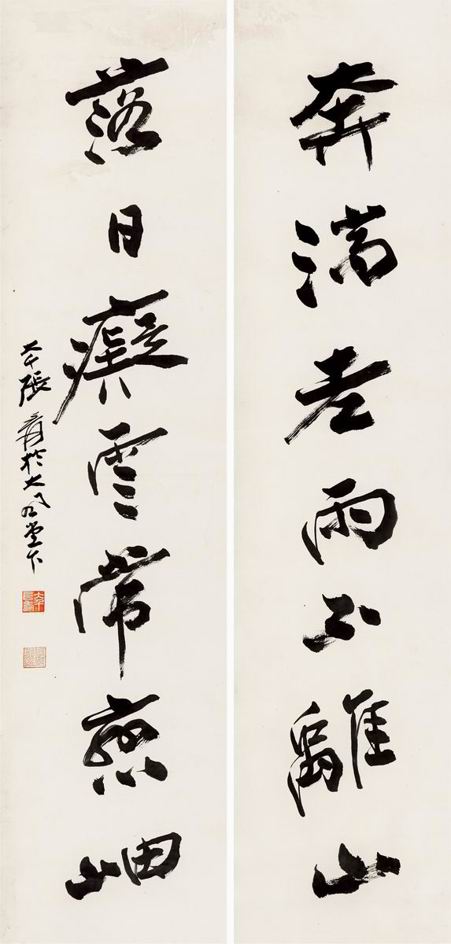 奔湍老雨不離山
落日癡雲常戀岫
大千張爰於大風堂下